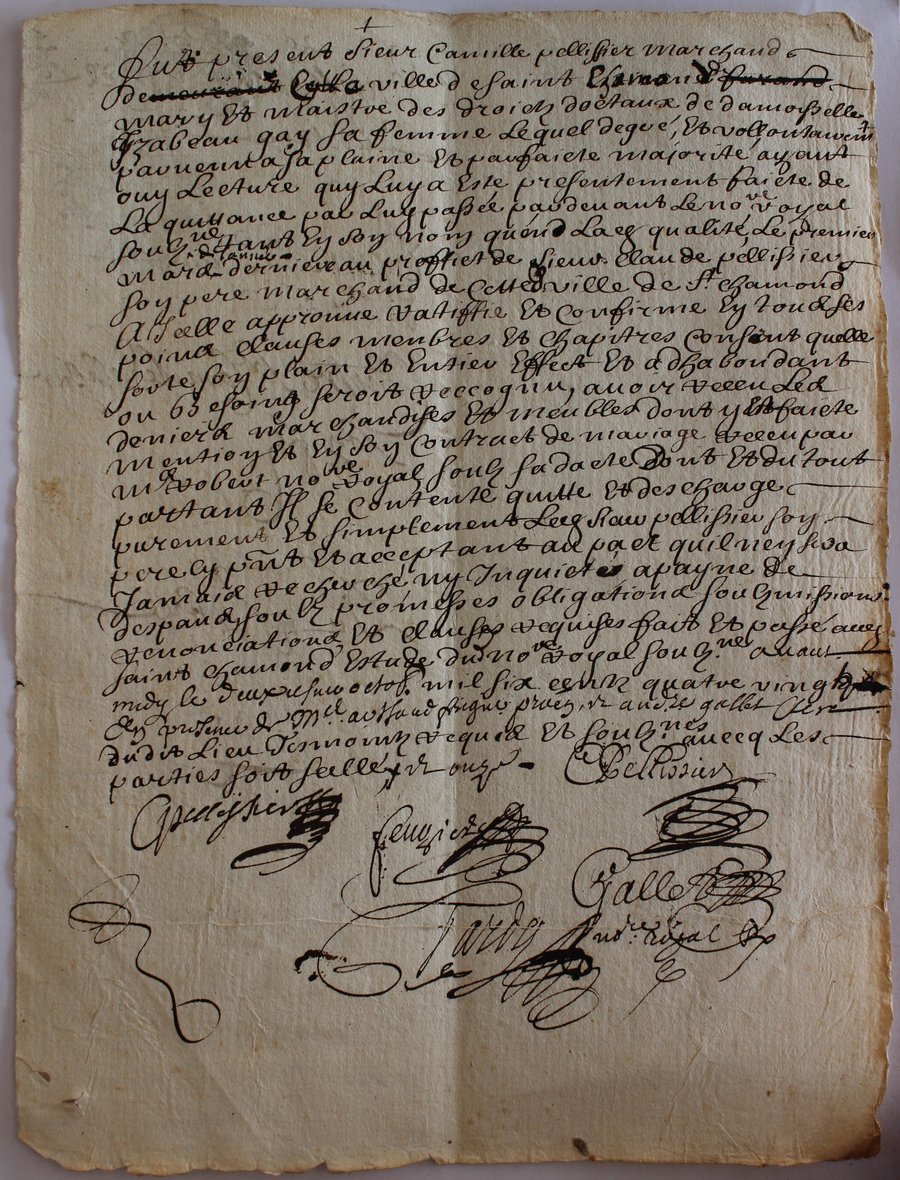 Fut present sieur Camille pellissier marchand
de ville de saint Chamond
mary et maistre des droictz doctaux de damoiselle
Yzabeau gay sa femme Lequel de gré, et vollontairement
parvenu a sa plaine et parfaicte majorité ayant
ouy Lecture quy Luy a esté presentement faicte de
La quittance par Luy passée pardevant Le nore royal
soubzné tant en son nom quend Lad qualité, Le premier
mars dernier au proffict de sieur Claude pellissier
son pere marchand de Cette ville de St chamond
A Icelle approuve ratiffie et Confirme en tous ses
pointz clauses membres et chapitres Consent quelle
sorte son plain et Entier Effect et adhabondant
ou besoing seroit reccognu, avoir receu Led
deniers marchandises et meubles dont y est faicte
mention et en son contract de mariage receu par
me robert nore royal soubz sa dacte Dont et du tout
partant Il se contente quitte et descharge
purement et simplement Led sieur pellissier son
pere cy pnt et acceptant au pact quil nen sera
Jamais recherché ny Inquieté a payne de
despans soubz promesses obligations soubzmissions
renonciations et clauses requises fait et passé aud
saint chamond Estude dud nore royal soubzné avant
midy le octob. mil six centz quatre vingtz
En presence de gallet Clerc
dudit Lieu Tesmointz requis et soubznés avecq Les
parties soit sellé et onze
Pellissier
Cpellissier
Gallet
Tardy
nore royal